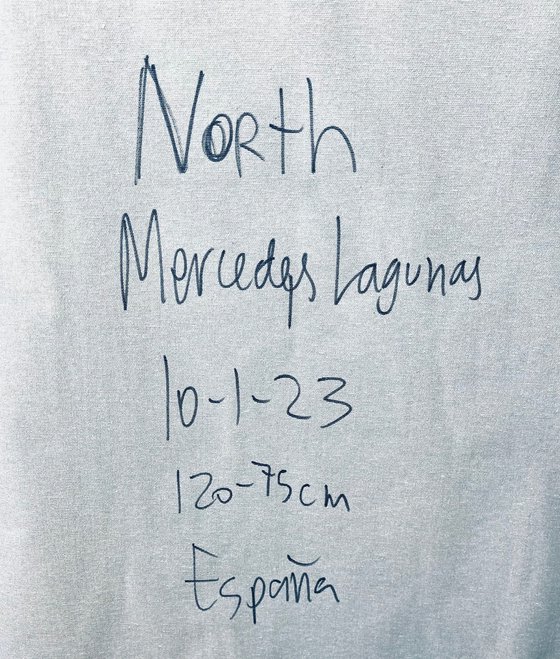 North
Mercedes Lagunas
10-1-23
120-75cm
España